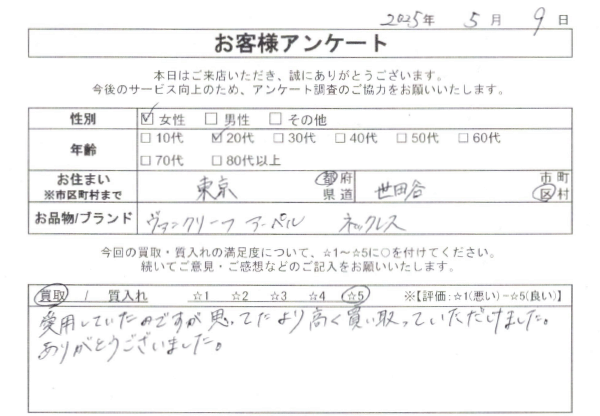 2025年 5月 9日
お客様アンケート
本日はご来店いただき、誠にありがとうございます。
今後のサービス向上のため、アンケート調査のご協力をお願いいたします。
性別 ☑女性 □男性 □その他
年齢 □10代 ☑20代 □30代 □40代 □50代 □60代
□70代 □80代以上
お住まい ※市区町村まで 東京 都府県道 世田谷 市町区村
お品物/ブランド ヴァンクリーフ アーペル ネックレス
今回の買取・質入れの満足度について、☆1～☆5に○を付けてください。
続いてご意見・ご感想などのご記入をお願いいたします。
買取 / 質入れ ☆1 ☆2 ☆3 ☆4 ☆5 ※【評価:☆1(悪い)−☆5(良い)】
愛用していたのですが思ってたより高く買い取っていただけました。
ありがとうございました。